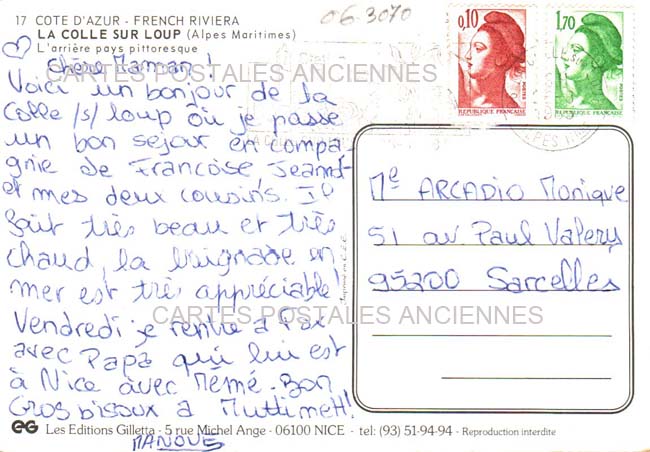 17 COTE D'AZUR - FRENCH RIVIERA
LA COLLE SUR LOUP (Alpes Maritimes)
L'arrière pays pittoresque
06.3070
0,10
1,70
POSTES
REPUBLIQUE FRANCAISE
POSTES
REPUBLIQUE FRANCAISE
CARTES POSTALES ANCIENNES
Chère Maman!
Voici un bonjour de la
Colle /s/ loup où je passe
un bon séjour en compa
gnie de Françoise, Jeannot
et mes deux cousins. Il
fait très beau et très
chaud, la baignade en
mer est très appréciable!
Vendredi je rentre à
avec Papa qui lui est
à Nice avec Mémé. Bon
Gros bisoux à
MANOUS
Me ARCADIO Monique
51 av Paul Valery
95200 Sarcelles
CARTES POSTALES ANCIENNES
EG Les Editions Gilletta - 5 rue Michel Ange - 06100 NICE - tel: (93) 51-94-94 - Reproduction interdite